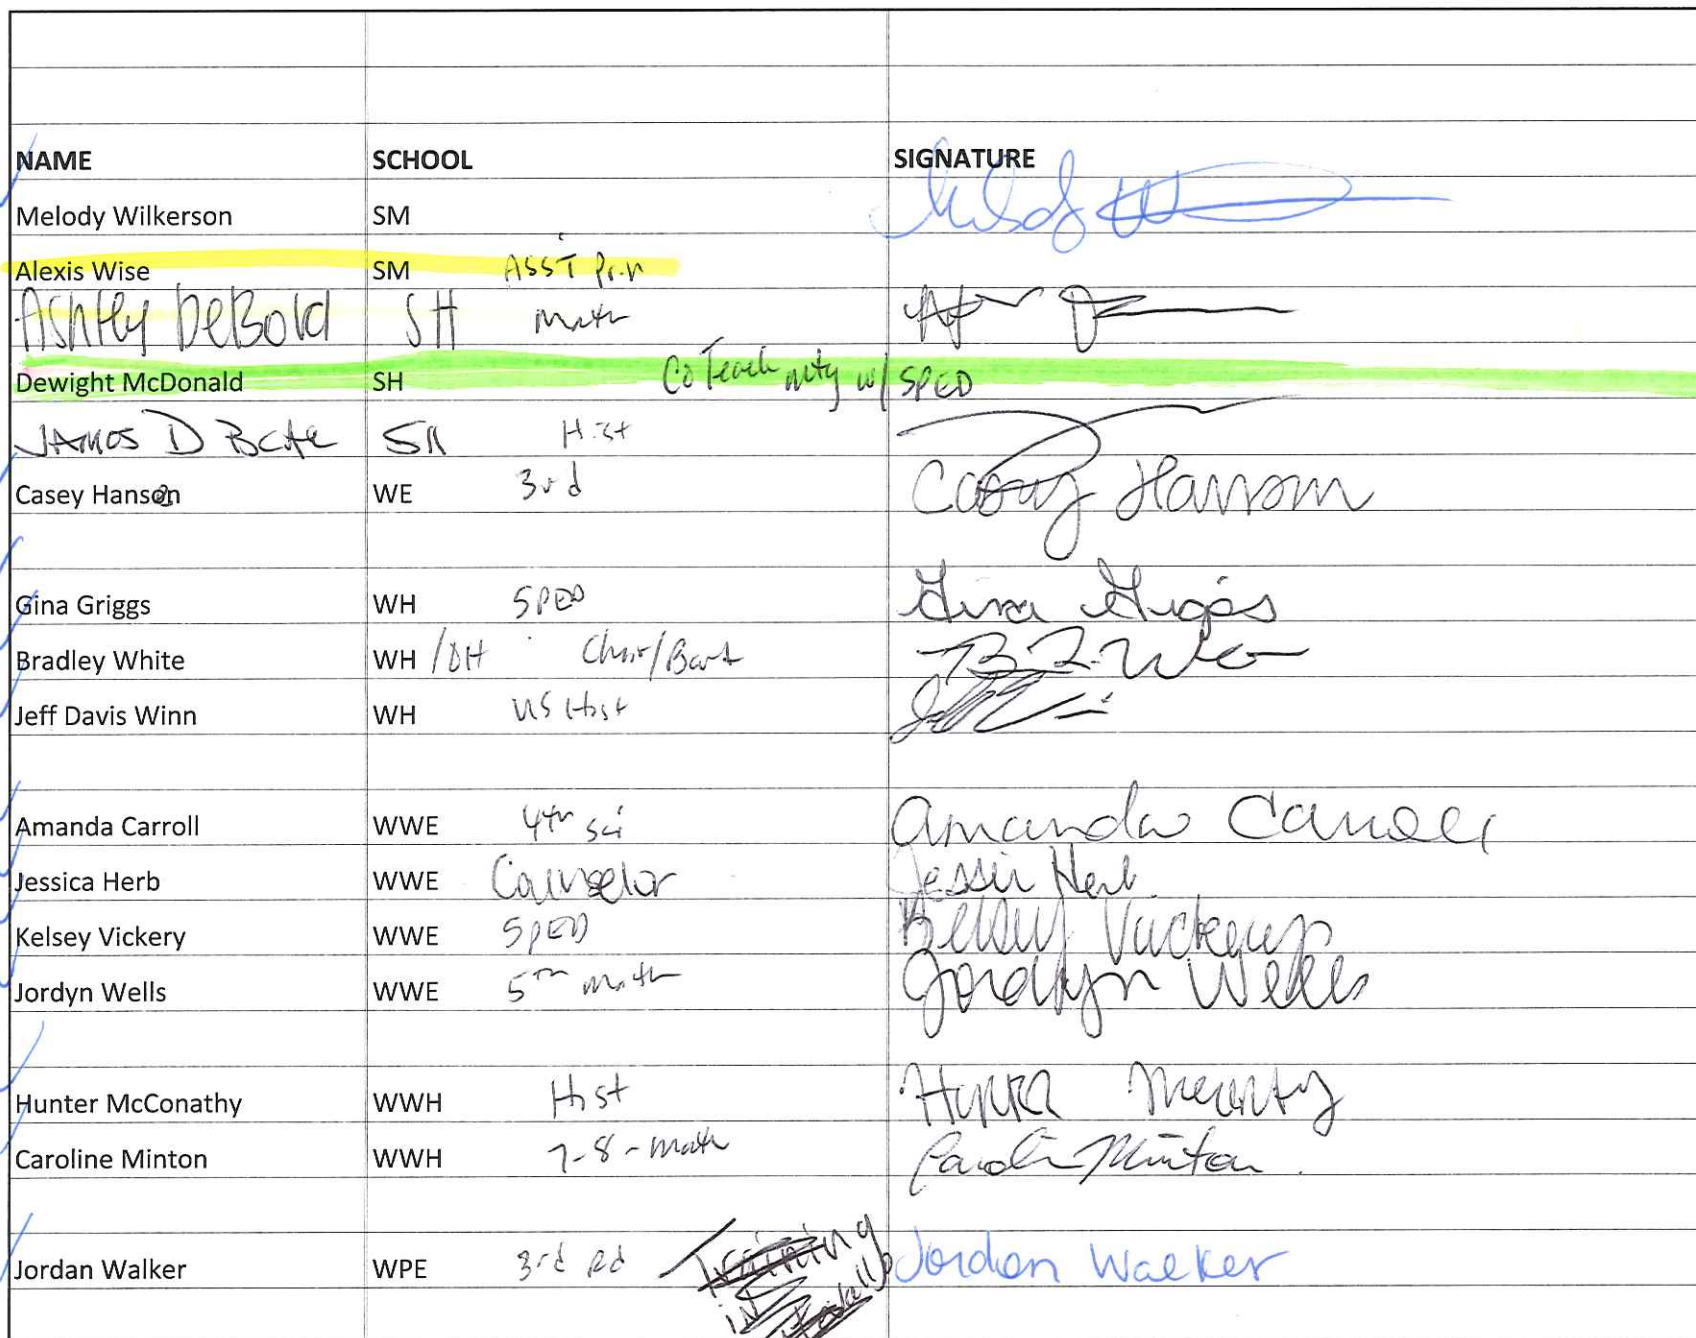 NAME SCHOOL SIGNATURE
Melody Wilkerson SM
Alexis Wise SM ASST Prin
Ashley DeBold SH Math
Dewight McDonald SH CoTeach mtg w/ SPED
James D SH Hist
Casey Hanson WE 3rd Casey Hansom
Gina Griggs WH SPED Gina Griggs
Bradley White WH /DH Choir/Band
Jeff Davis Winn WH US Hist
Amanda Carroll WWE 4th Sci Amanda Carroll
Jessica Herb WWE Counselor Jessica Herb
Kelsey Vickery WWE SPED Kelsey Vickery
Jordyn Wells WWE 5th math Jordyn Wells
Hunter McConathy WWH Hist Hunter
Caroline Minton WWH 7-8-math Caroline Minton
Jordan Walker WPE 3rd Rd Training in Jordan Walker